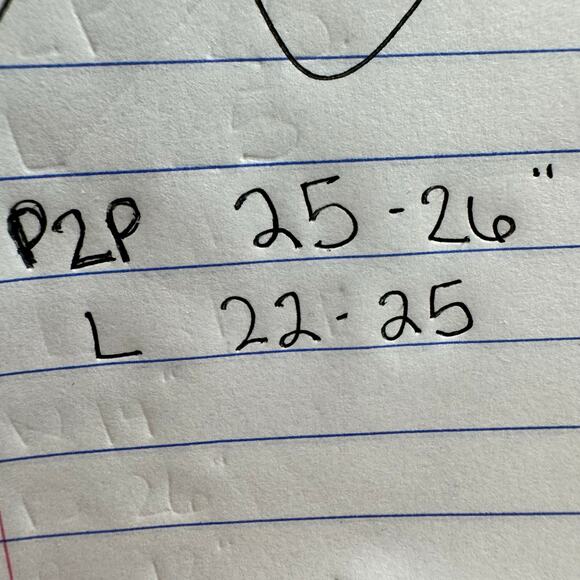 P2P 25-26"
L 22-25